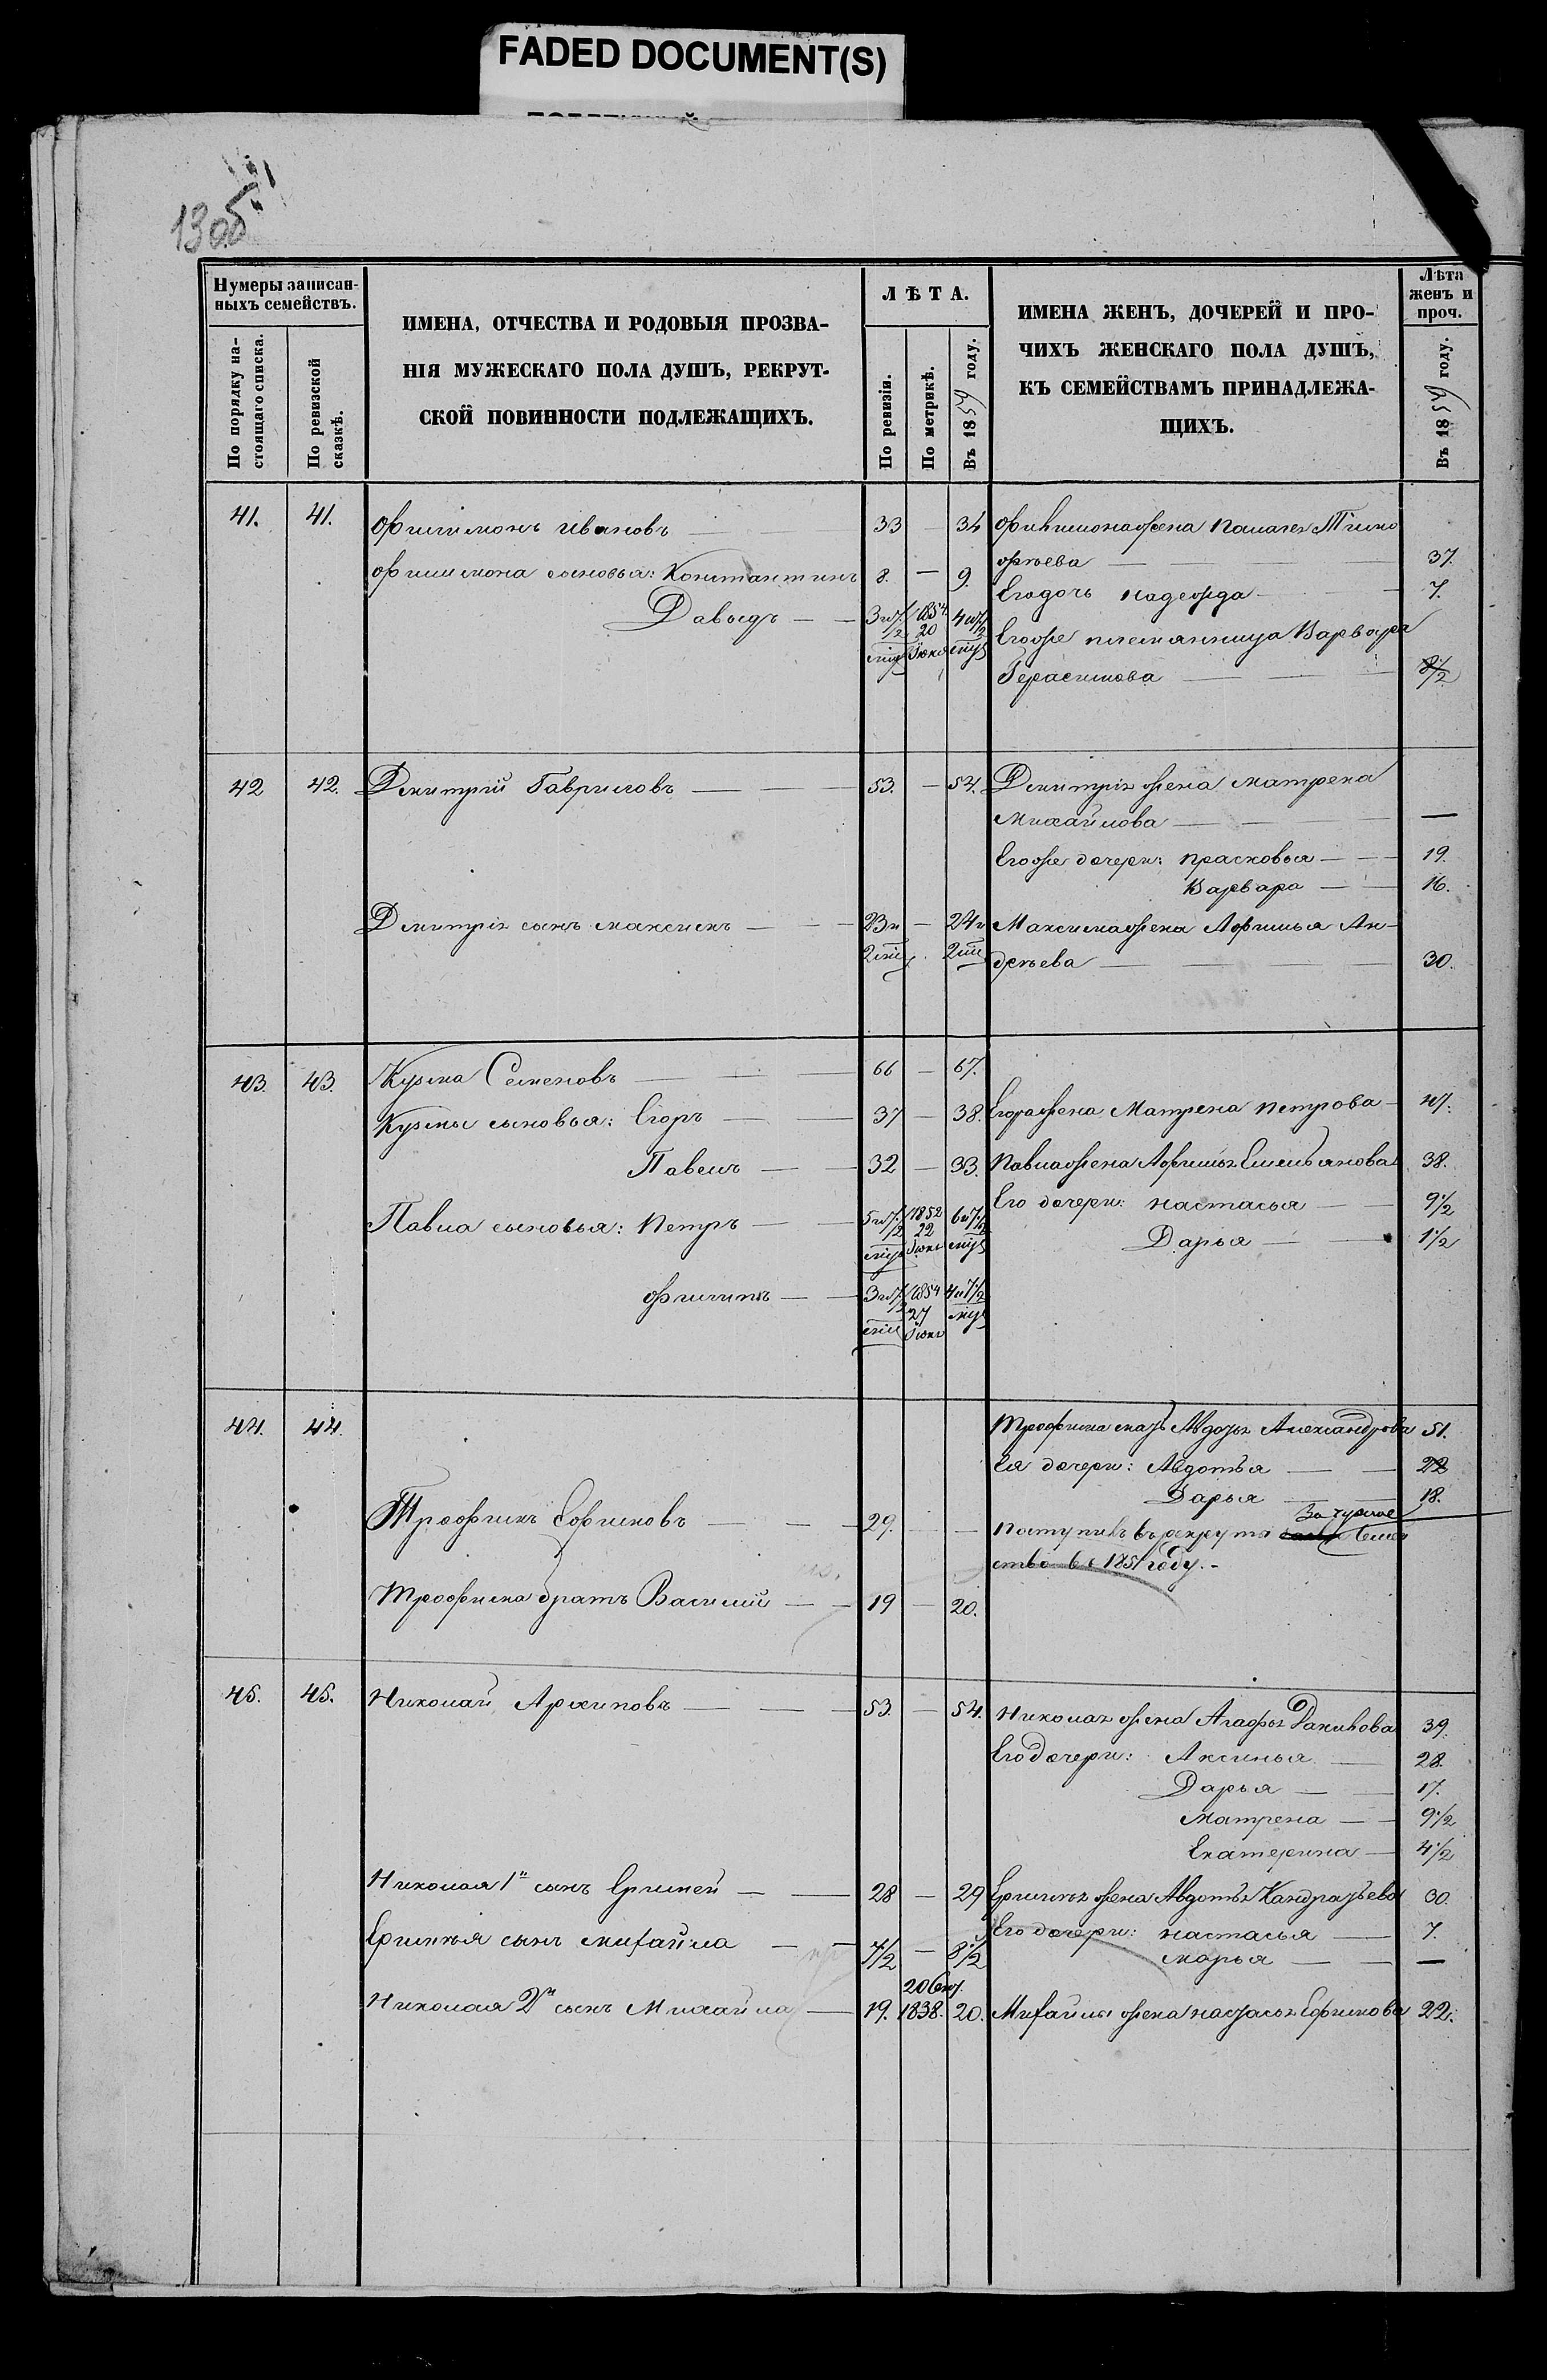 FADED DOCUMENT(S)
Нумеры записан-
ныхъ семействъ.
По порядку на-
стоящаго списка.
По ревизской
сказкѣ.
ИМЕНА, ОТЧЕСТВА И РОДОВЫЯ ПРОЗВА-
НІЯ МУЖЕСКАГО ПОЛА ДУШЪ, РЕКРУТ-
СКОЙ ПОВИННОСТИ ПОДЛЕЖАЩИХЪ.
ЛѢТА.
По ревизіи.
По метрикѣ.
Въ 1859 году.
ИМЕНА ЖЕНЪ, ДОЧЕРЕЙ И ПРО-
ЧИХЪ ЖЕНСКАГО ПОЛА ДУШЪ,
КЪ СЕМЕЙСТВАМЪ ПРИНАДЛЕЖА-
ЩИХЪ.
Лѣта
женъ и
проч.
Въ 1859 году.
41. 41. Филимонъ Ивановъ 33 — 34 Филимона жена Палагея Тимо
фѣева 37.
Филимона сыновья: Константинъ 8. — 9.
Его дочь Надежда 7.
Давыдъ 3 и 7/12 мѣс 1854 20 Іюня 4 и 7/12 мѣс
Его же племянница Варвара
Герасимова 8 1/2
42 42. Дмитрій Гавриловъ 53. — 54. Дмитрія жена Матрена
Михайлова —
Его же дочери: Прасковья 19.
Варвара 16.
Дмитрія сынъ Максимъ 23 и 2 мѣс — 24 и 2 мѣс Максима жена Афимья Ан-
дреева 30.
43. 43. Кузма Семеновъ 66 — 67.
Кузмы сыновья: Егоръ 37 — 38. Егора жена Матрена Петрова 47.
Павелъ 32 — 33. Павла жена Афимья Емельянова 38.
Его дочери: Настасья 9 1/2
Павла сыновья: Петръ 5 и 7/12 мѣс 1852 22 Іюня 6 и 7/12 мѣс
Дарья 1 1/2
Филипъ 3 и 7/12 мѣс 1854 27 Іюня 4 и 7/12 мѣс
44. 44. Трофима мать Авдотья Александрова 51.
Ея дочери: Авдотья 22
Дарья 18.
Трофимъ Ефимовъ 29. — Поступилъ въ рекруты за чужое семей
ство въ 1851 году.-
Трофима братъ Василій 19 — 20.
45. 45. Николай Архиповъ 53. — 54. Николая жена Агафья Данилова 39.
Его дочери: Аксинья 28.
Дарья 17.
Матрена 9 1/2
Екатерина 4 1/2
Николая 1й сынъ Ермилей 28 — 29 Жена Авдотья Кандратьева 30.
Его дочери: Настасья 7.
сынъ Михайла 7 1/2 — 8 1/2
Марья —
Николая 2й сынъ Михайла 19. 1838. 20. Михайлы жена Настасья Ефимова 22.